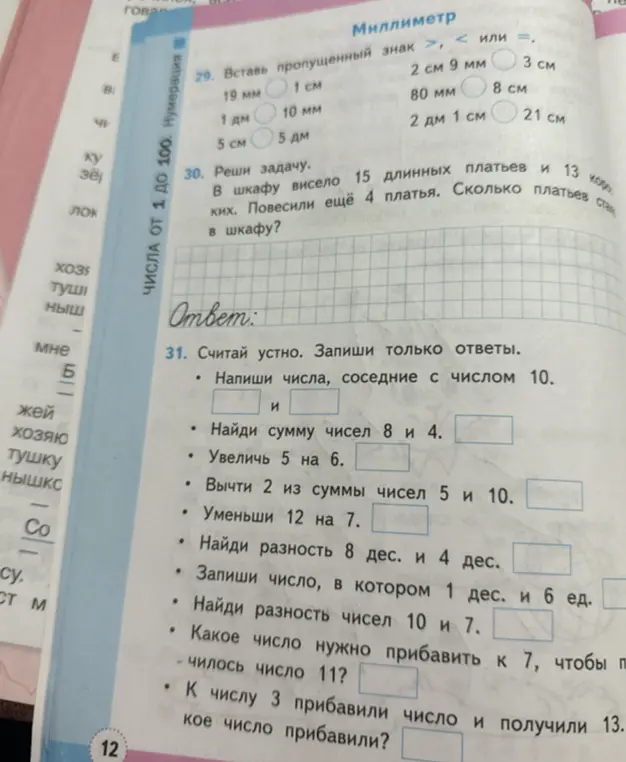 Миллиметр
ЧИСЛА ОТ 1 ДО 100. Нумерация
29. Вставь пропущенный знак >, < или =.
19 мм 1 см
2 см 9 мм 3 см
1 дм 10 мм
80 мм 8 см
5 см 5 дм
2 дм 1 см 21 см
30. Реши задачу.
В шкафу висело 15 длинных платьев и 13 коро
ких. Повесили ещё 4 платья. Сколько платьев ста
в шкафу?
Ответ:
31. Считай устно. Запиши только ответы.
• Напиши числа, соседние с числом 10.
и
• Найди сумму чисел 8 и 4.
• Увеличь 5 на 6.
• Вычти 2 из суммы чисел 5 и 10.
• Уменьши 12 на 7.
• Найди разность 8 дес. и 4 дес.
• Запиши число, в котором 1 дес. и 6 ед.
• Найди разность чисел 10 и 7.
• Какое число нужно прибавить к 7, чтобы п
чилось число 11?
• К числу 3 прибавили число и получили 13.
кое число прибавили?
12
ку
лок
хозя
туш
ныш
мне
Б
жей
хозяю
тушку
нышко
Со
су.
ст м